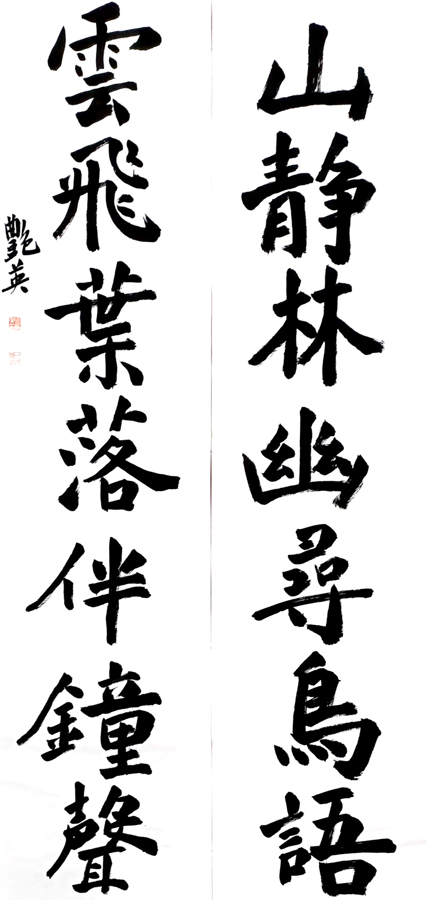 山静林幽尋鳥語
雲飛葉落伴鐘聲
艷英